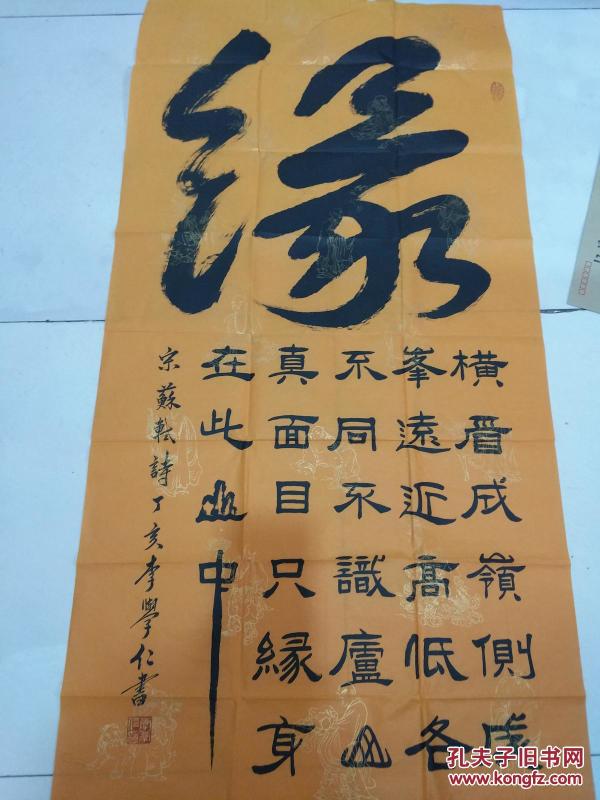 緣
横看成嶺側成
峯遠近高低各
不同不識廬山
真面目只緣身
在此山中
宋蘇軾詩丁亥李學仁書
孔夫子旧书网
www.kongfz.com